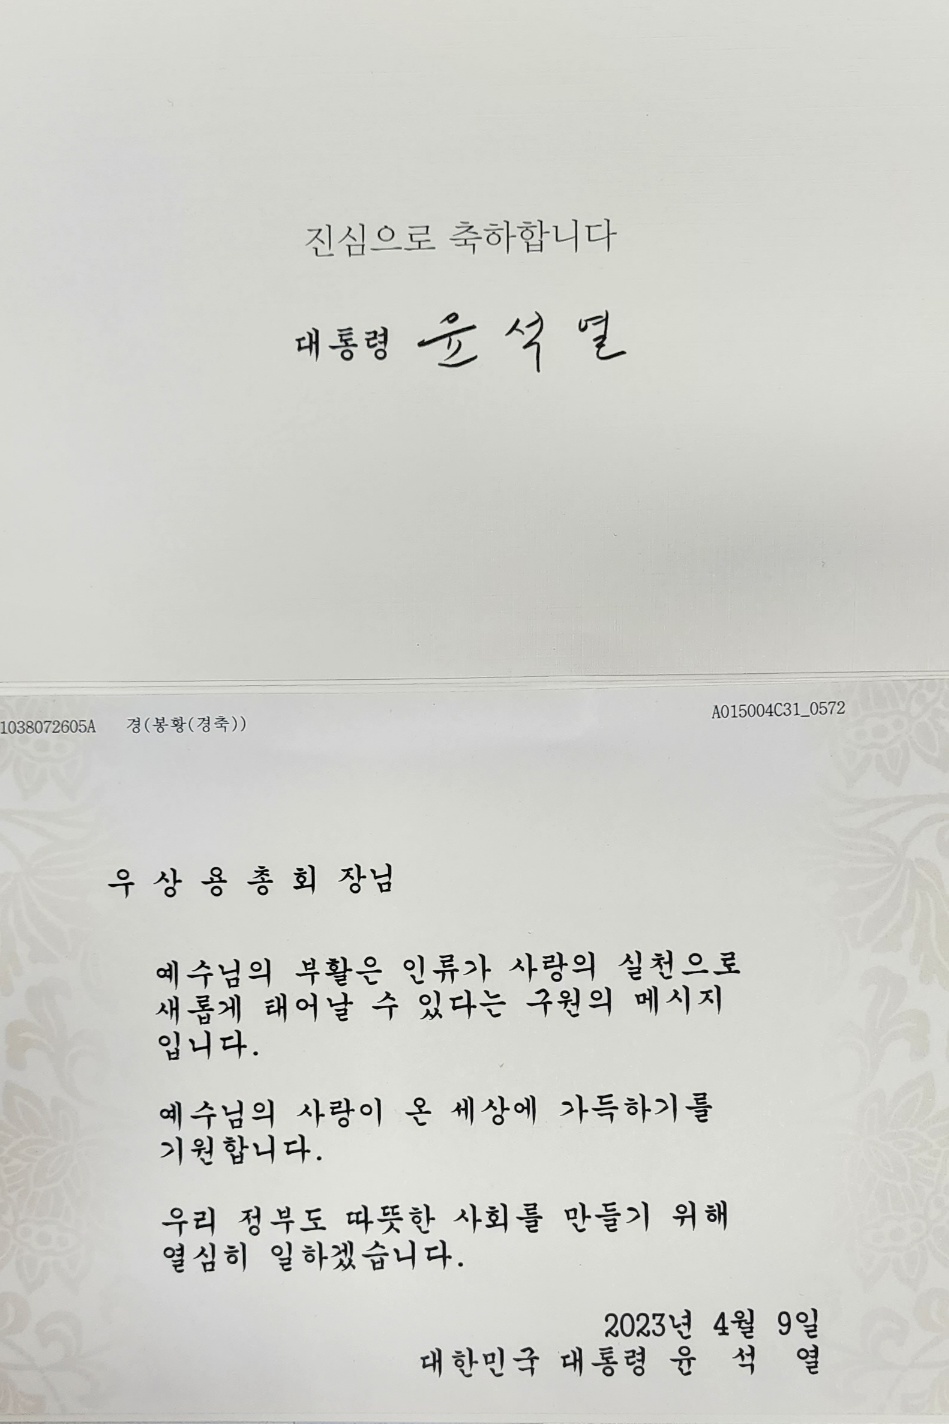 진심으로 축하합니다
대통령 윤석열
1038072605A 경(봉황(경축)) A015004C31_0572
우 상 용 총 회 장님
예수님의 부활은 인류가 사랑의 실천으로
새롭게 태어날 수 있다는 구원의 메시지
입니다.
예수님의 사랑이 온 세상에 가득하기를
기원합니다.
우리 정부도 따뜻한 사회를 만들기 위해
열심히 일하겠습니다.
2023년 4월 9일
대한민국 대통령 윤 석 열